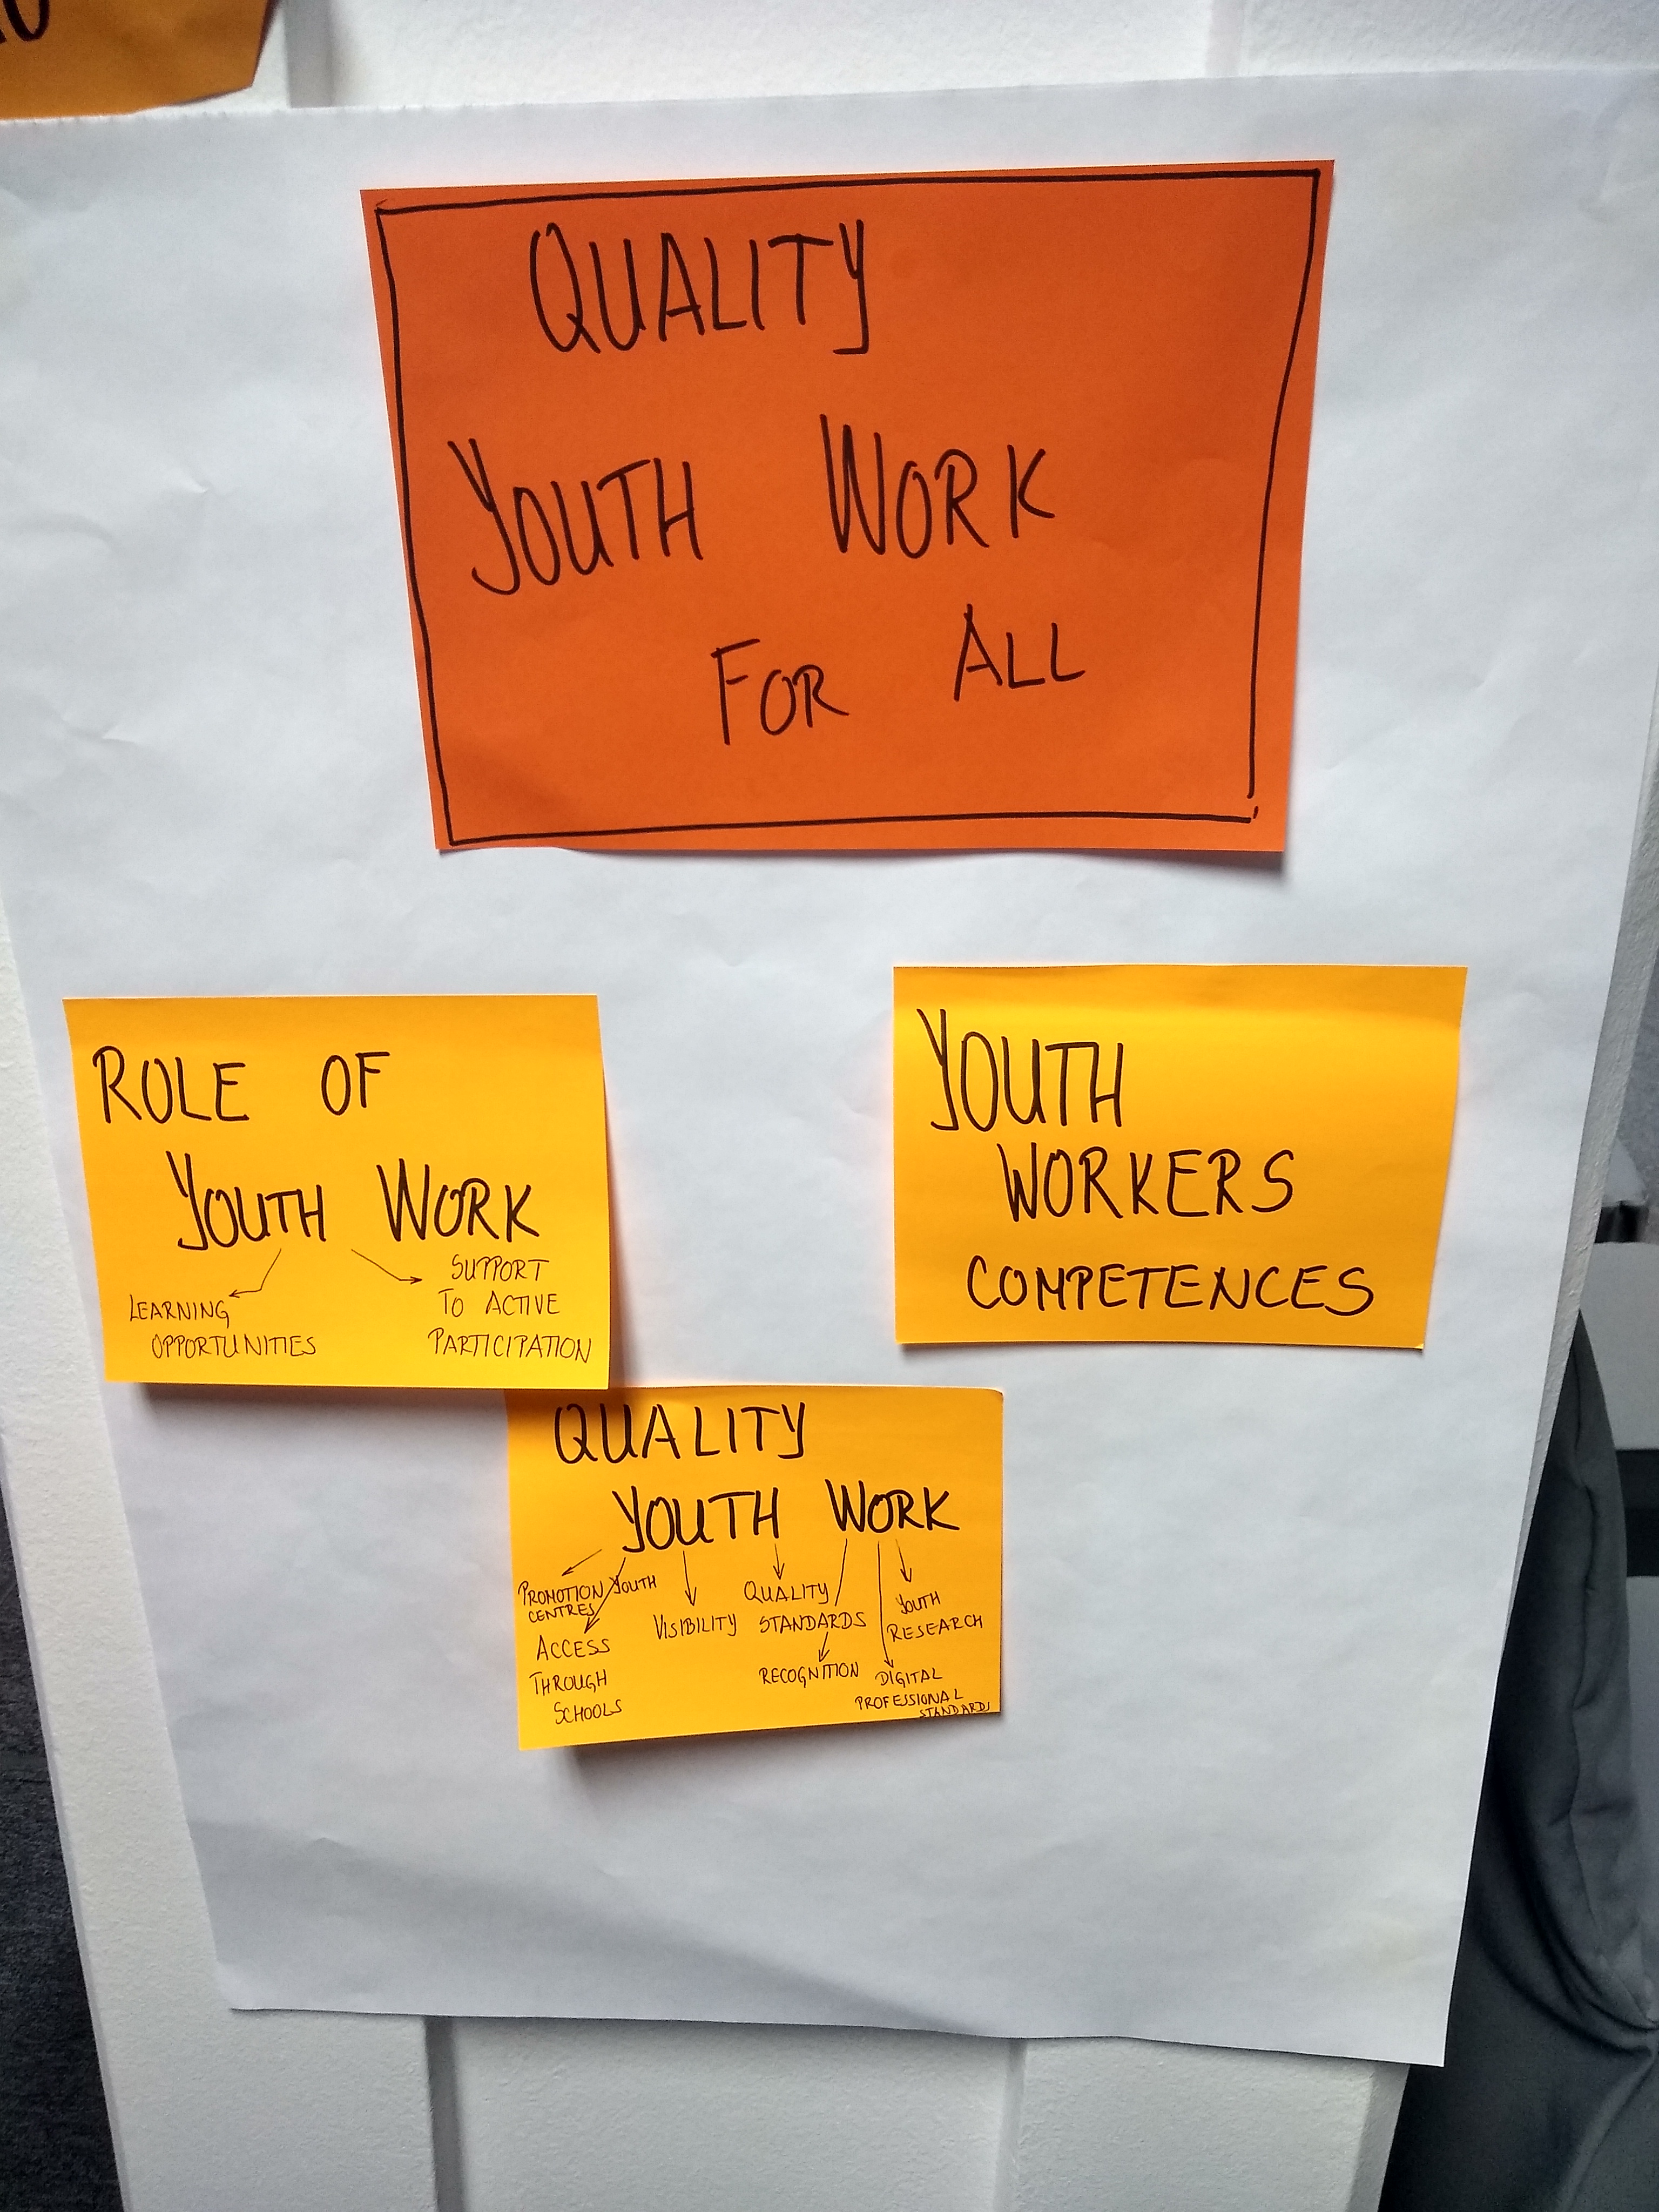 QUALITY
YOUTH WORK
FOR ALL
ROLE OF
YOUTH WORK
LEARNING
OPPORTUNITIES
SUPPORT
TO ACTIVE
PARTICIPATION
YOUTH
WORKERS
COMPETENCES
QUALITY
YOUTH WORK
PROMOTION YOUTH
CENTRES
ACCESS
THROUGH
SCHOOLS
VISIBILITY
QUALITY
STANDARDS
RECOGNITION
YOUTH
RESEARCH
DIGITAL
PROFESSIONAL
STANDARDS